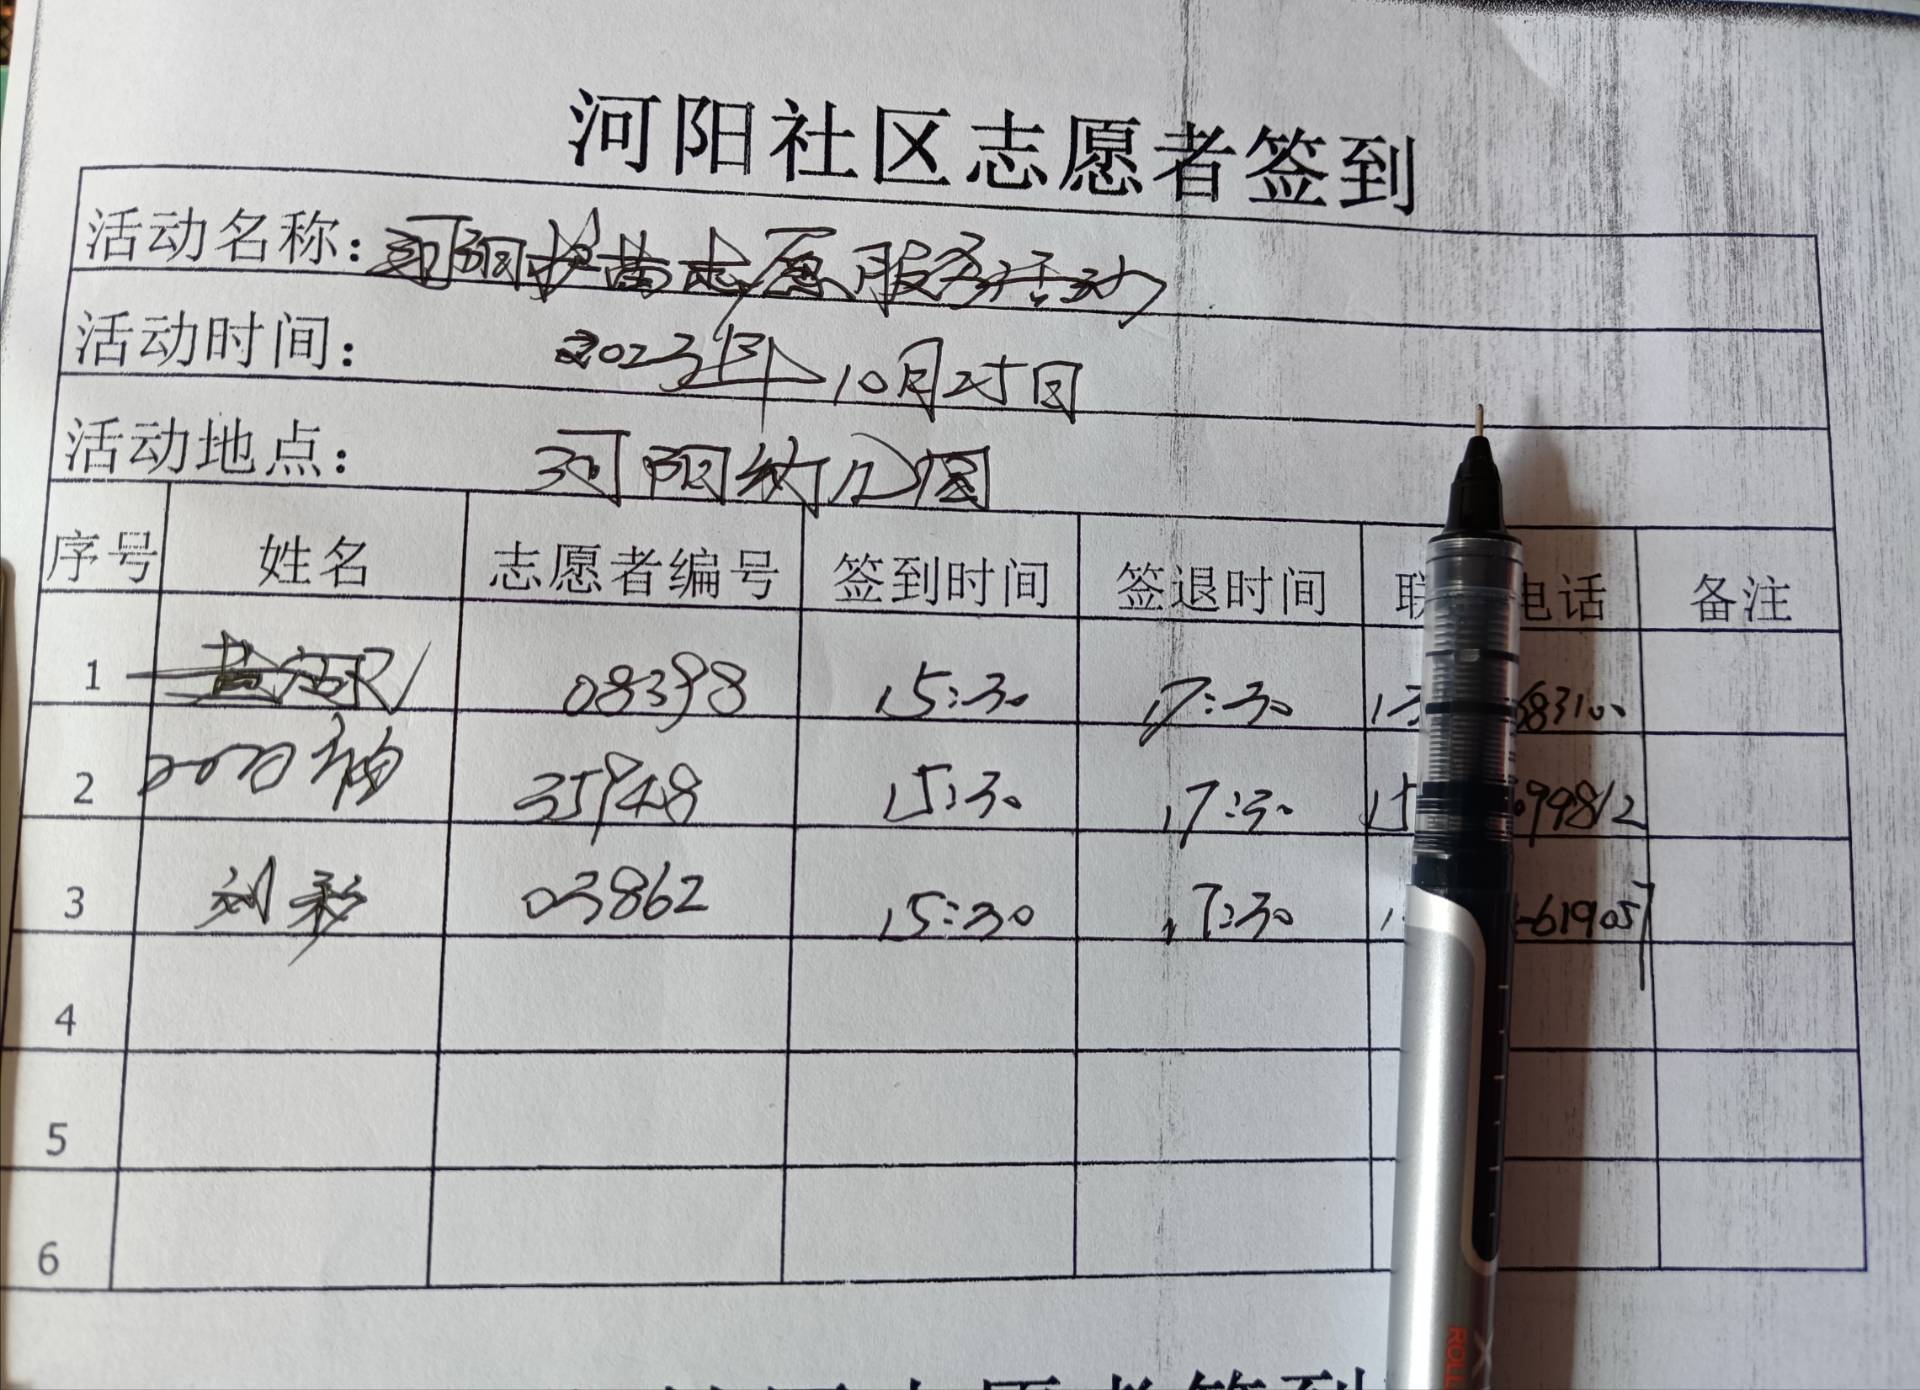 河阳社区志愿者签到
活动名称：河阳护苗志愿服务活动
活动时间： 2023年10月25日
活动地点： 河阳幼儿园
序号 姓名 志愿者编号 签到时间 签退时间 联 电话 备注
1 08398 15:30 17:30 13 68310
2 35948 15:30 17:30 15 099812
3 刘彩 03862 15:30 17:30 1 619057
4
5
6
志愿者签到